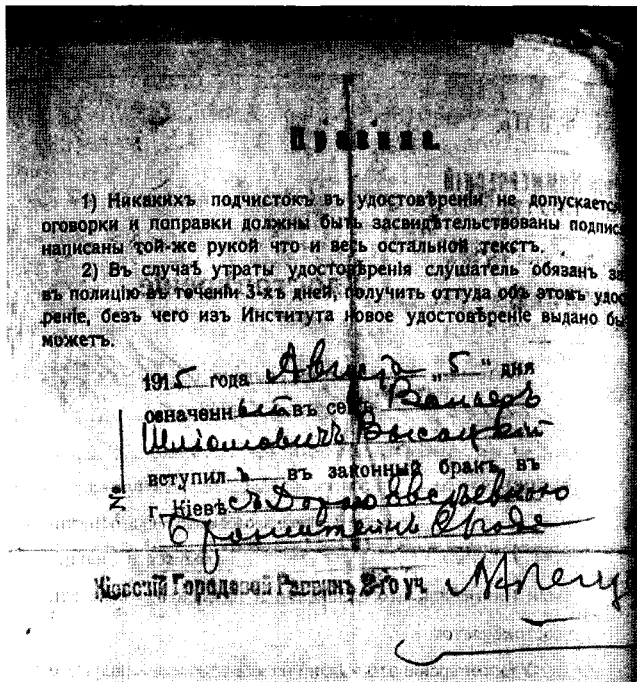 Правила.
1) Никакихъ подчистокъ въ удостовѣреніи не допускаетс
оговорки и поправки должны быть засвидѣтельствованы подпис
написаны той-же рукой что и весь остальной текстъ.
2) Въ случаѣ утраты удостовѣренія слушатель обязанъ за
въ полицію въ теченіи 3-хъ дней, получить оттуда объ этомъ удос
реніе, безъ чего изъ Института новое удостовѣреніе выдано бы
можетъ.
1915 года Августа „5“ дня
означенный въ семъ
Высоцкій
вступилъ въ законный бракъ въ
г. Кіевѣ съ Дорою
Бронштейнъ
№
Кіевскій Городской Раввинъ 2-го уч.